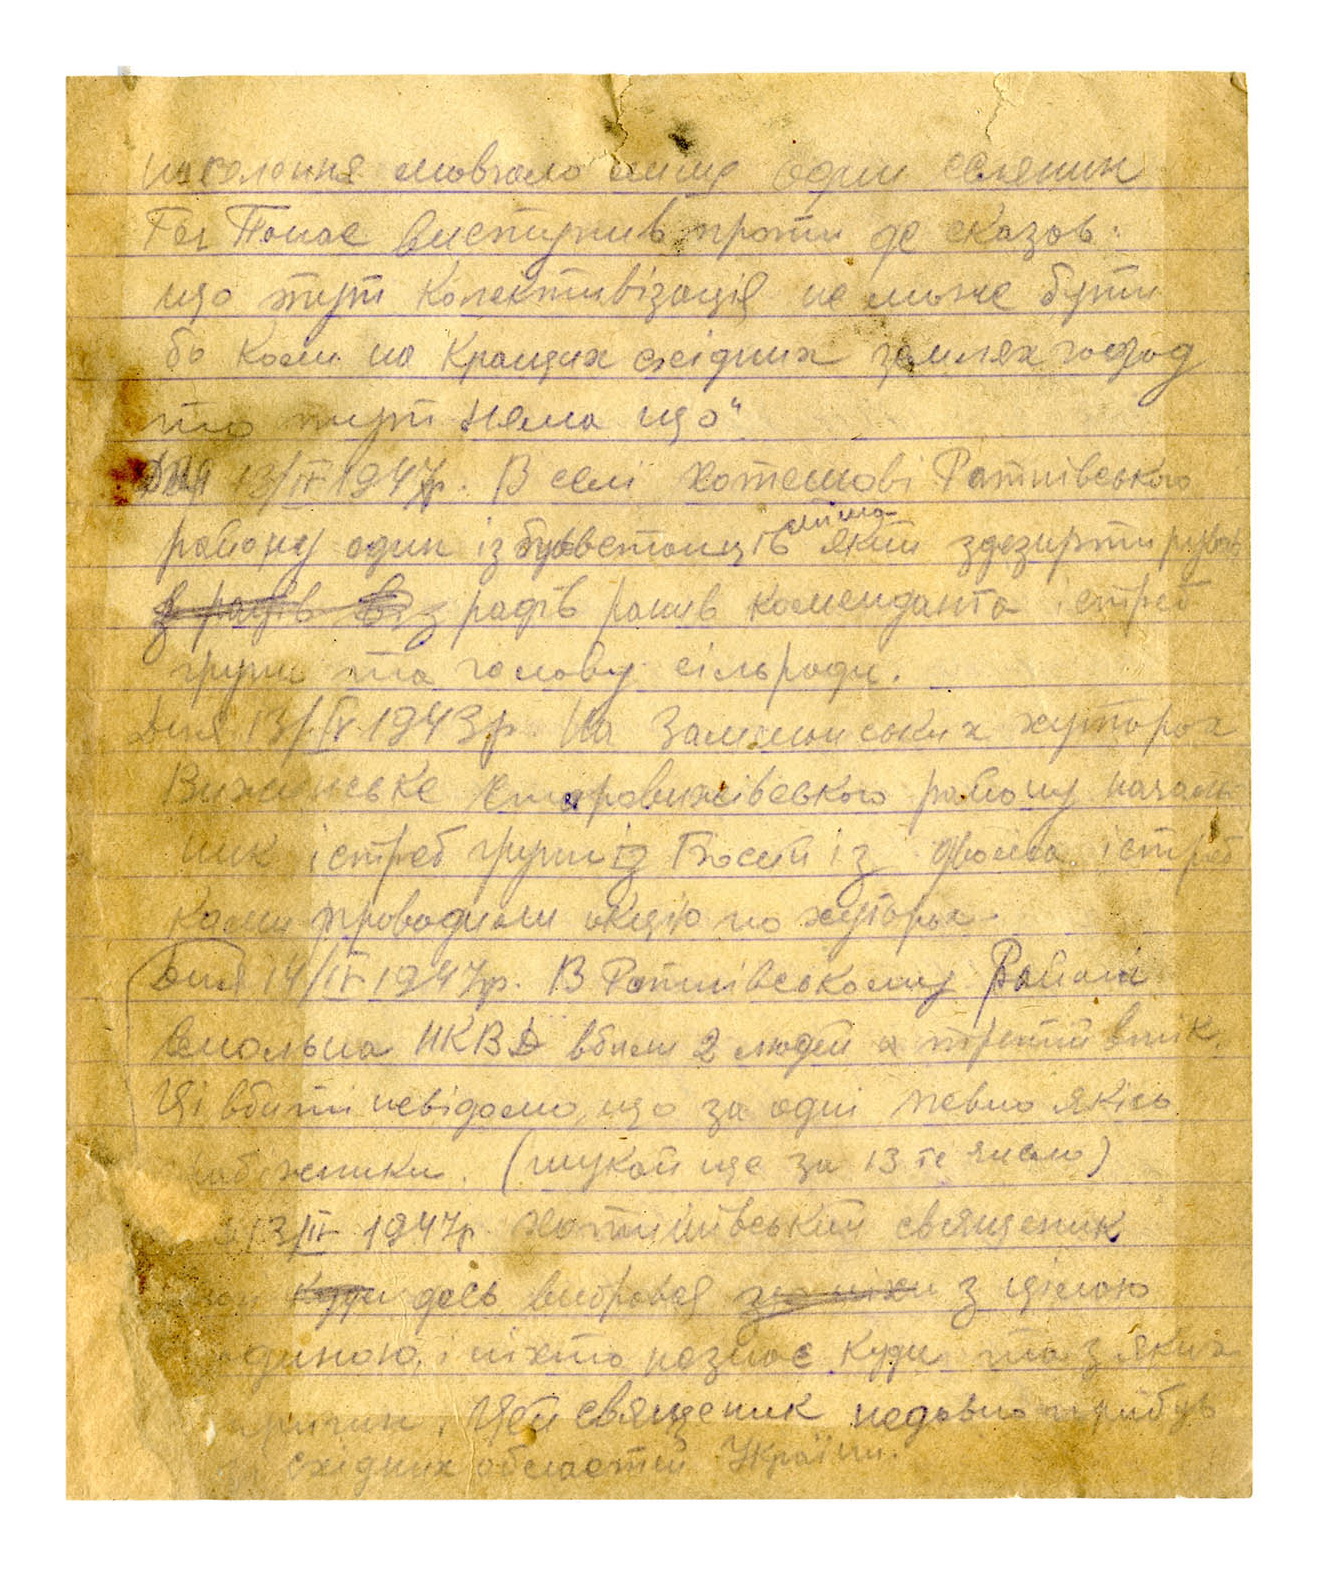 населення мовчало лише один селянин
Гац Панас виступив проти де сказав:
що тут колективізація не може бути
бо коли на кращих східних землях голод
то тут нема що"
Дня 13/IV 1947р. В селі Хотешові Ратнівського
району один із повстанців який здезиртирував
з рядів ранив коменданта істреб
групи та голову сільради.
Дня 13/IV 1943р. На Залинських хуторах
Вижлівське Старовижівського району началь
ник істреб групи із двома істреб
ками проводили акцію по хуторах.
Дня 14/IV 1947р. В Ратнівському районі
НКВД вбили 2 людей а третій втік.
Ці вбиті невідомо, що за одні певно якісь
(шукай ще за 13 те число)
13/IV 1947р. Хотишівський священик
десь вибрався з цілою
диною, і ніхто незнає куди та з яких
причин. Цей священик недавно прибув
східних областей України.